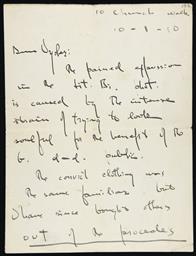 10 Church Walk
10-8-50
Dear Sydes:
The pained expression
in the Lit. Bs. dot.
is caused by the intense
strain of trying to look
soulful for the benefit of the
G. d—d. public.
The convict clothing was
the same familiar but
I have since bought others
out of the proceeds